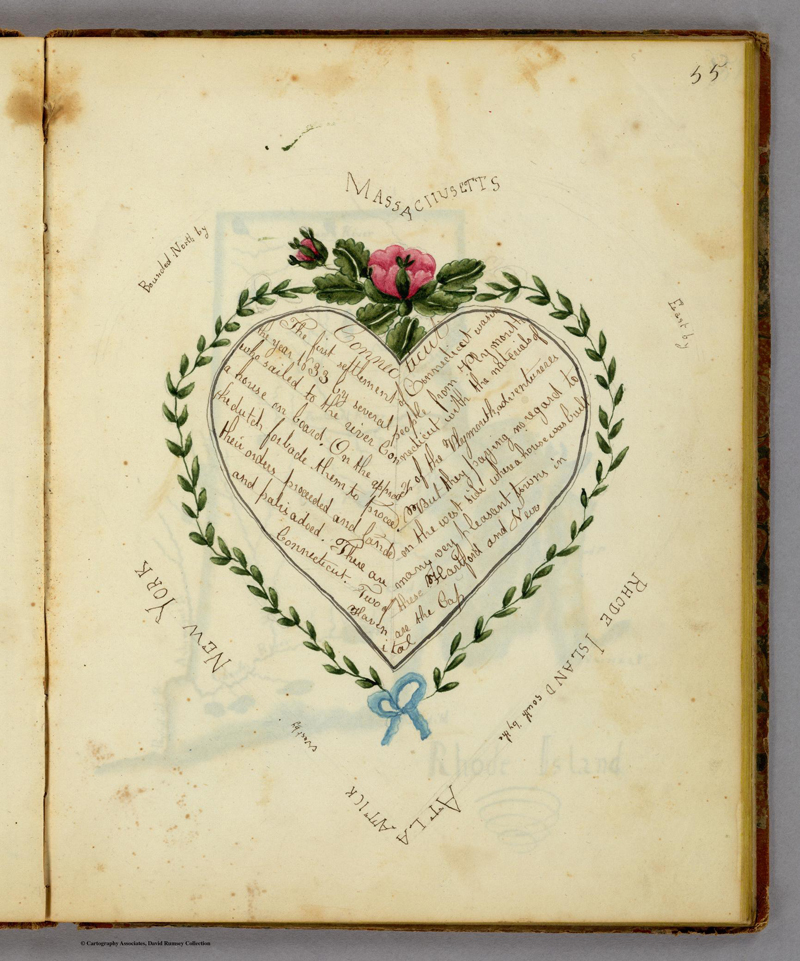 55
Bounded North by
MASSACHUSETTS
East by
RHODE ISLAND South by the
ATTLA
ATTICK
West by
NEW YORK
Connecticut
The first settlement of Connecticut was in
the year 1633 by several people from Plymouth
who sailed to the river Connecticut with the materials of
a house on board On the approach of the Plymouth adventurers
the dutch forbade them to proceed But they paying no regard to
their orders proceeded and landed on the west side where a house was built
and palisadoed. There are many very pleasant towns in
Connecticut. Two of these Hartford and New
Haven are the Cap
ital
Rhode Island
© Cartography Associates, David Rumsey Collection